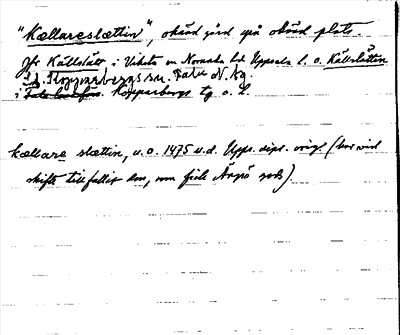 "Kællareslættin", okänd gård på okänd plats.
Jfr Källslätt i Viksta sn Norunda hd Uppsala l. o. Källslätten
i Kopparbergs sn. Falu N. tg.
i Kopparbergs tg o. l.
kællare slættin, u.o. 1475 u.d. Upps. dipl. orig (hur vid
skifte tillfallit dem, som fick Årsjö gods).